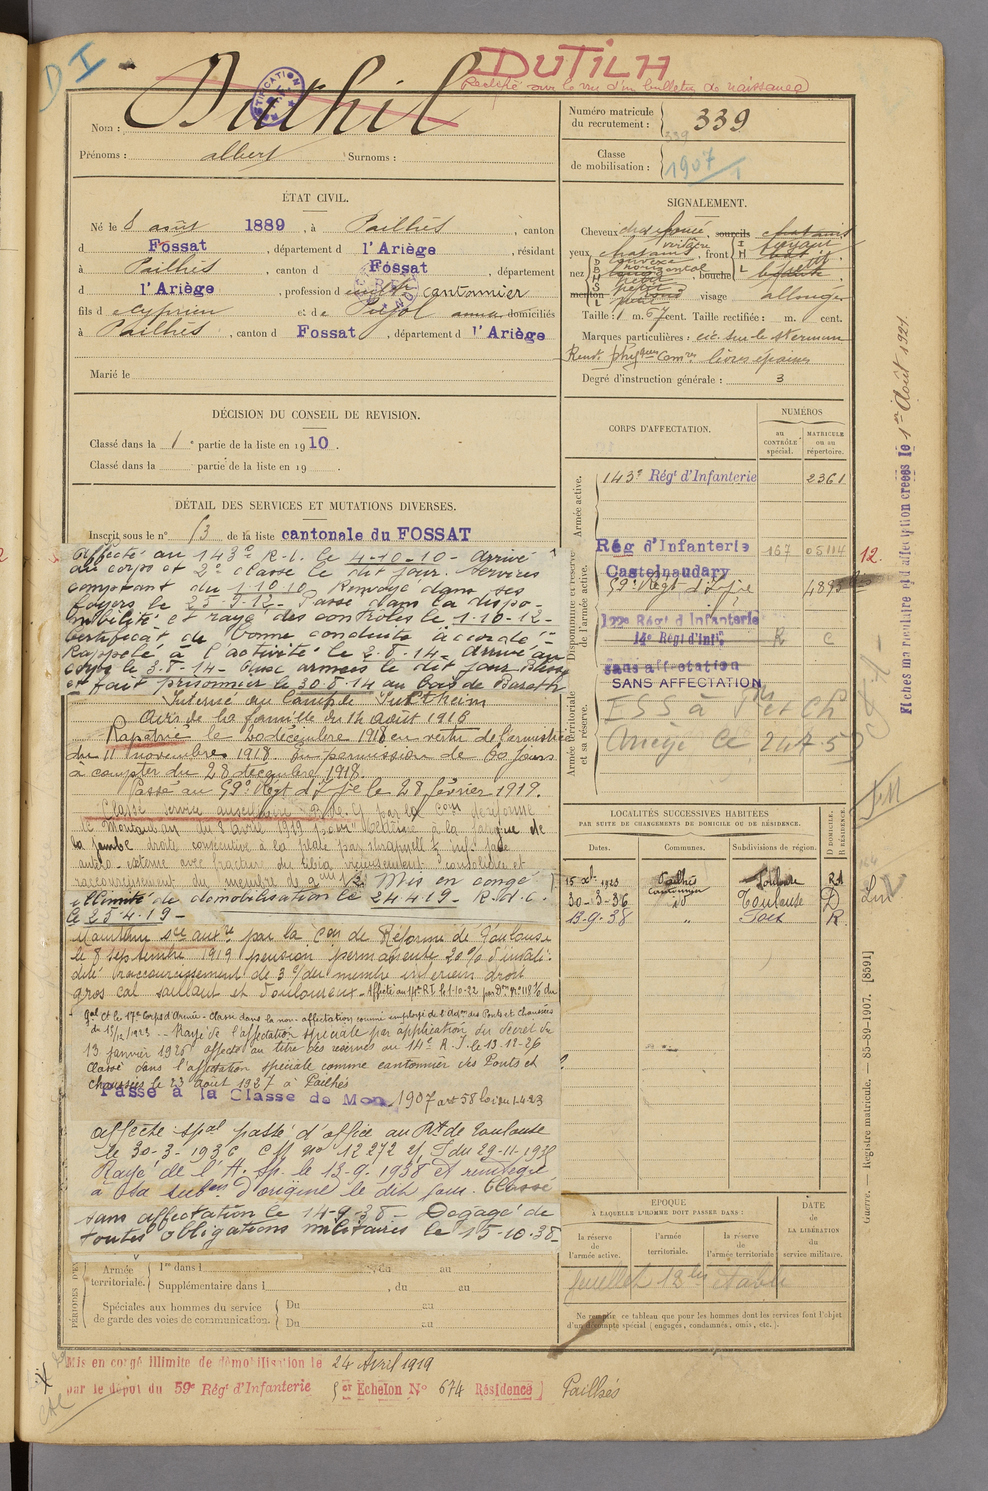 DI
DUTILH
Rectifié sur le vu d'un bulletin de naissance
Nom : Duthil
Prénoms : albert Surnoms :
Numéro matricule du recrutement : 339
339
Classe de mobilisation : 1907
ÉTAT CIVIL.
Né le 8 août 1889, à Pailhès, canton
d Fossat, département d l'Ariège, résidant
à Pailhès, canton d Fossat, département
d l'Ariège, profession d cantonnier
fils d e Cyprien et de Pujol anna domiciliés
à Pailhès, canton d Fossat, département d l'Ariège
Marié le
SIGNALEMENT.
Cheveux chat foncé, sourcils chatains
yeux chatains, front fuyant
nez, bouche
menton visage allongé
Taille : 1 m. 67 cent. Taille rectifiée : m. cent.
Marques particulières : cic. sur le sternum
lèvres épaisses
Degré d'instruction générale : 3
DÉCISION DU CONSEIL DE REVISION.
Classé dans la 1e partie de la liste en 1910.
Classé dans la partie de la liste en 19 .
DÉTAIL DES SERVICES ET MUTATIONS DIVERSES.
Inscrit sous le n° 13 de la liste cantonale du FOSSAT
Affecté au 143e R.I. le 4-10-10- Arrivé
au corps et 2e classe le dit jour. Services
comptant du 1-10-10. Renvoyé dans ses
foyers le 25-9-12- Passé dans la dispo-
nibilité et rayé des controles le 1-10-12-
Certificat de bonne conduite accordé-
Rappelé à l'activité le 2-8-14- Arrivé au
corps le 3-8-14- Aux armées le dit jour Blessé
et fait prisonnier le 30-8-14 au bois de Barath
Interné au Camp de
Avis de la famille du 14 Août 1916
Rapatrié le 20 décembre 1918 en vertu de l'armistice
du 11 novembre 1918. En permission de 60 jours
à compter du 28 décembre 1918.
Passé au 59e Régt d'Ifie le 28 février 1919.
Classé service auxiliaire par la Con de réforme
de Montauban du 8 avril 1919 pour
la jambe droite consécutive à la plaie par shrapnell
antéro-externe avec fracture du tibia vicieusement consolidée et
raccourcissement du membre de Mis en congé
illimité de démobilisation le 24.4.19- R.d.C.
le 25.4.19-
Maintenu sce auxre par la Con de Réforme de Toulouse
le 8 septembre 1919 pension permanente 20% d'invali-
dité raccourcissement de 3 c/ du membre inférieur droit
gros cal saillant et douloureux- Affecté au 14e RI le 1-10-22 par Don n° 118 1/2 du
Gal Ct le 17e Corps d'Armée- Classé dans la non-affectation comme employé de l'Admon des Ponts et chaussées
du 15/12/1923 - Rayé de l'affectation spéciale par application du décret du
13 janvier 1926 affecté au titre des réserves au 14e R.I. le 13-12-26
Classé dans l'affectation spéciale comme cantonnier des Ponts et
chaussées le 23 août 1927 à Pailhès
Passé à la Classe de Mon 1907 art 58 loi du 1.4.23
Affecté spal passé d'office au Rt de Toulouse
le 30-3-1936 CM n° 12272
Rayé de l'A. sp. le 13-9-1938 et réintégré
à sa subon d'origine le dit jour. Classé
sans affectation le 14-9-38- Dégagé de
toutes obligations militaires le 15-10-38-
CORPS D'AFFECTATION.
NUMÉROS
au CONTRÔLE spécial.
MATRICULE ou au répertoire.
Armée active.
Disponibilité et réserve de l'armée active.
Armée territoriale et sa réserve.
143e Régt d'Infanterie 2361
Rég d'Infanterie 167 05114 12.
Castelnaudary
59e Régt d'Ifie
Rég d'Infanterie
14e Régt d'Infie R C
sans affectation
SANS AFFECTATION
ESS à Pts et Ch
Ariège
LOCALITÉS SUCCESSIVES HABITÉES
PAR SUITE DE CHANGEMENTS DE DOMICILE OU DE RÉSIDENCE.
Dates. Communes. Subdivisions de région. D DOMICILE. R RÉSIDENCE.
1923 Pailhès Toulouse
cantonnier
30-3-36 d° Toulouse D
13-9-38 " Foix R
EPOQUE
À LAQUELLE L'HOMME DOIT PASSER DANS :
la réserve de l'armée active.
l'armée territoriale.
la réserve de l'armée territoriale
DATE de LA LIBÉRATION du service militaire.
feuillet 18 bis établi
Ne remplir ce tableau que pour les hommes dont les services font l'objet
d'un décompte spécial (engagés, condamnés, omis, etc.).
PÉRIODES D'EX
Armée territoriale.
1re dans l , du au
Supplémentaire dans l , du au
Spéciales aux hommes du service de garde des voies de communication.
Du au
Du au
Mis en congé illimité de démobilisation le 24 Avril 1919
par le dépôt du 59e Régt d'Infanterie Échelon N° 674 Résidence Pailhès
Fiches matriculaire et d'affection creées le 1er Août 1921.
Guerre. — Registre matricule. — 85-89-1907. [8591]